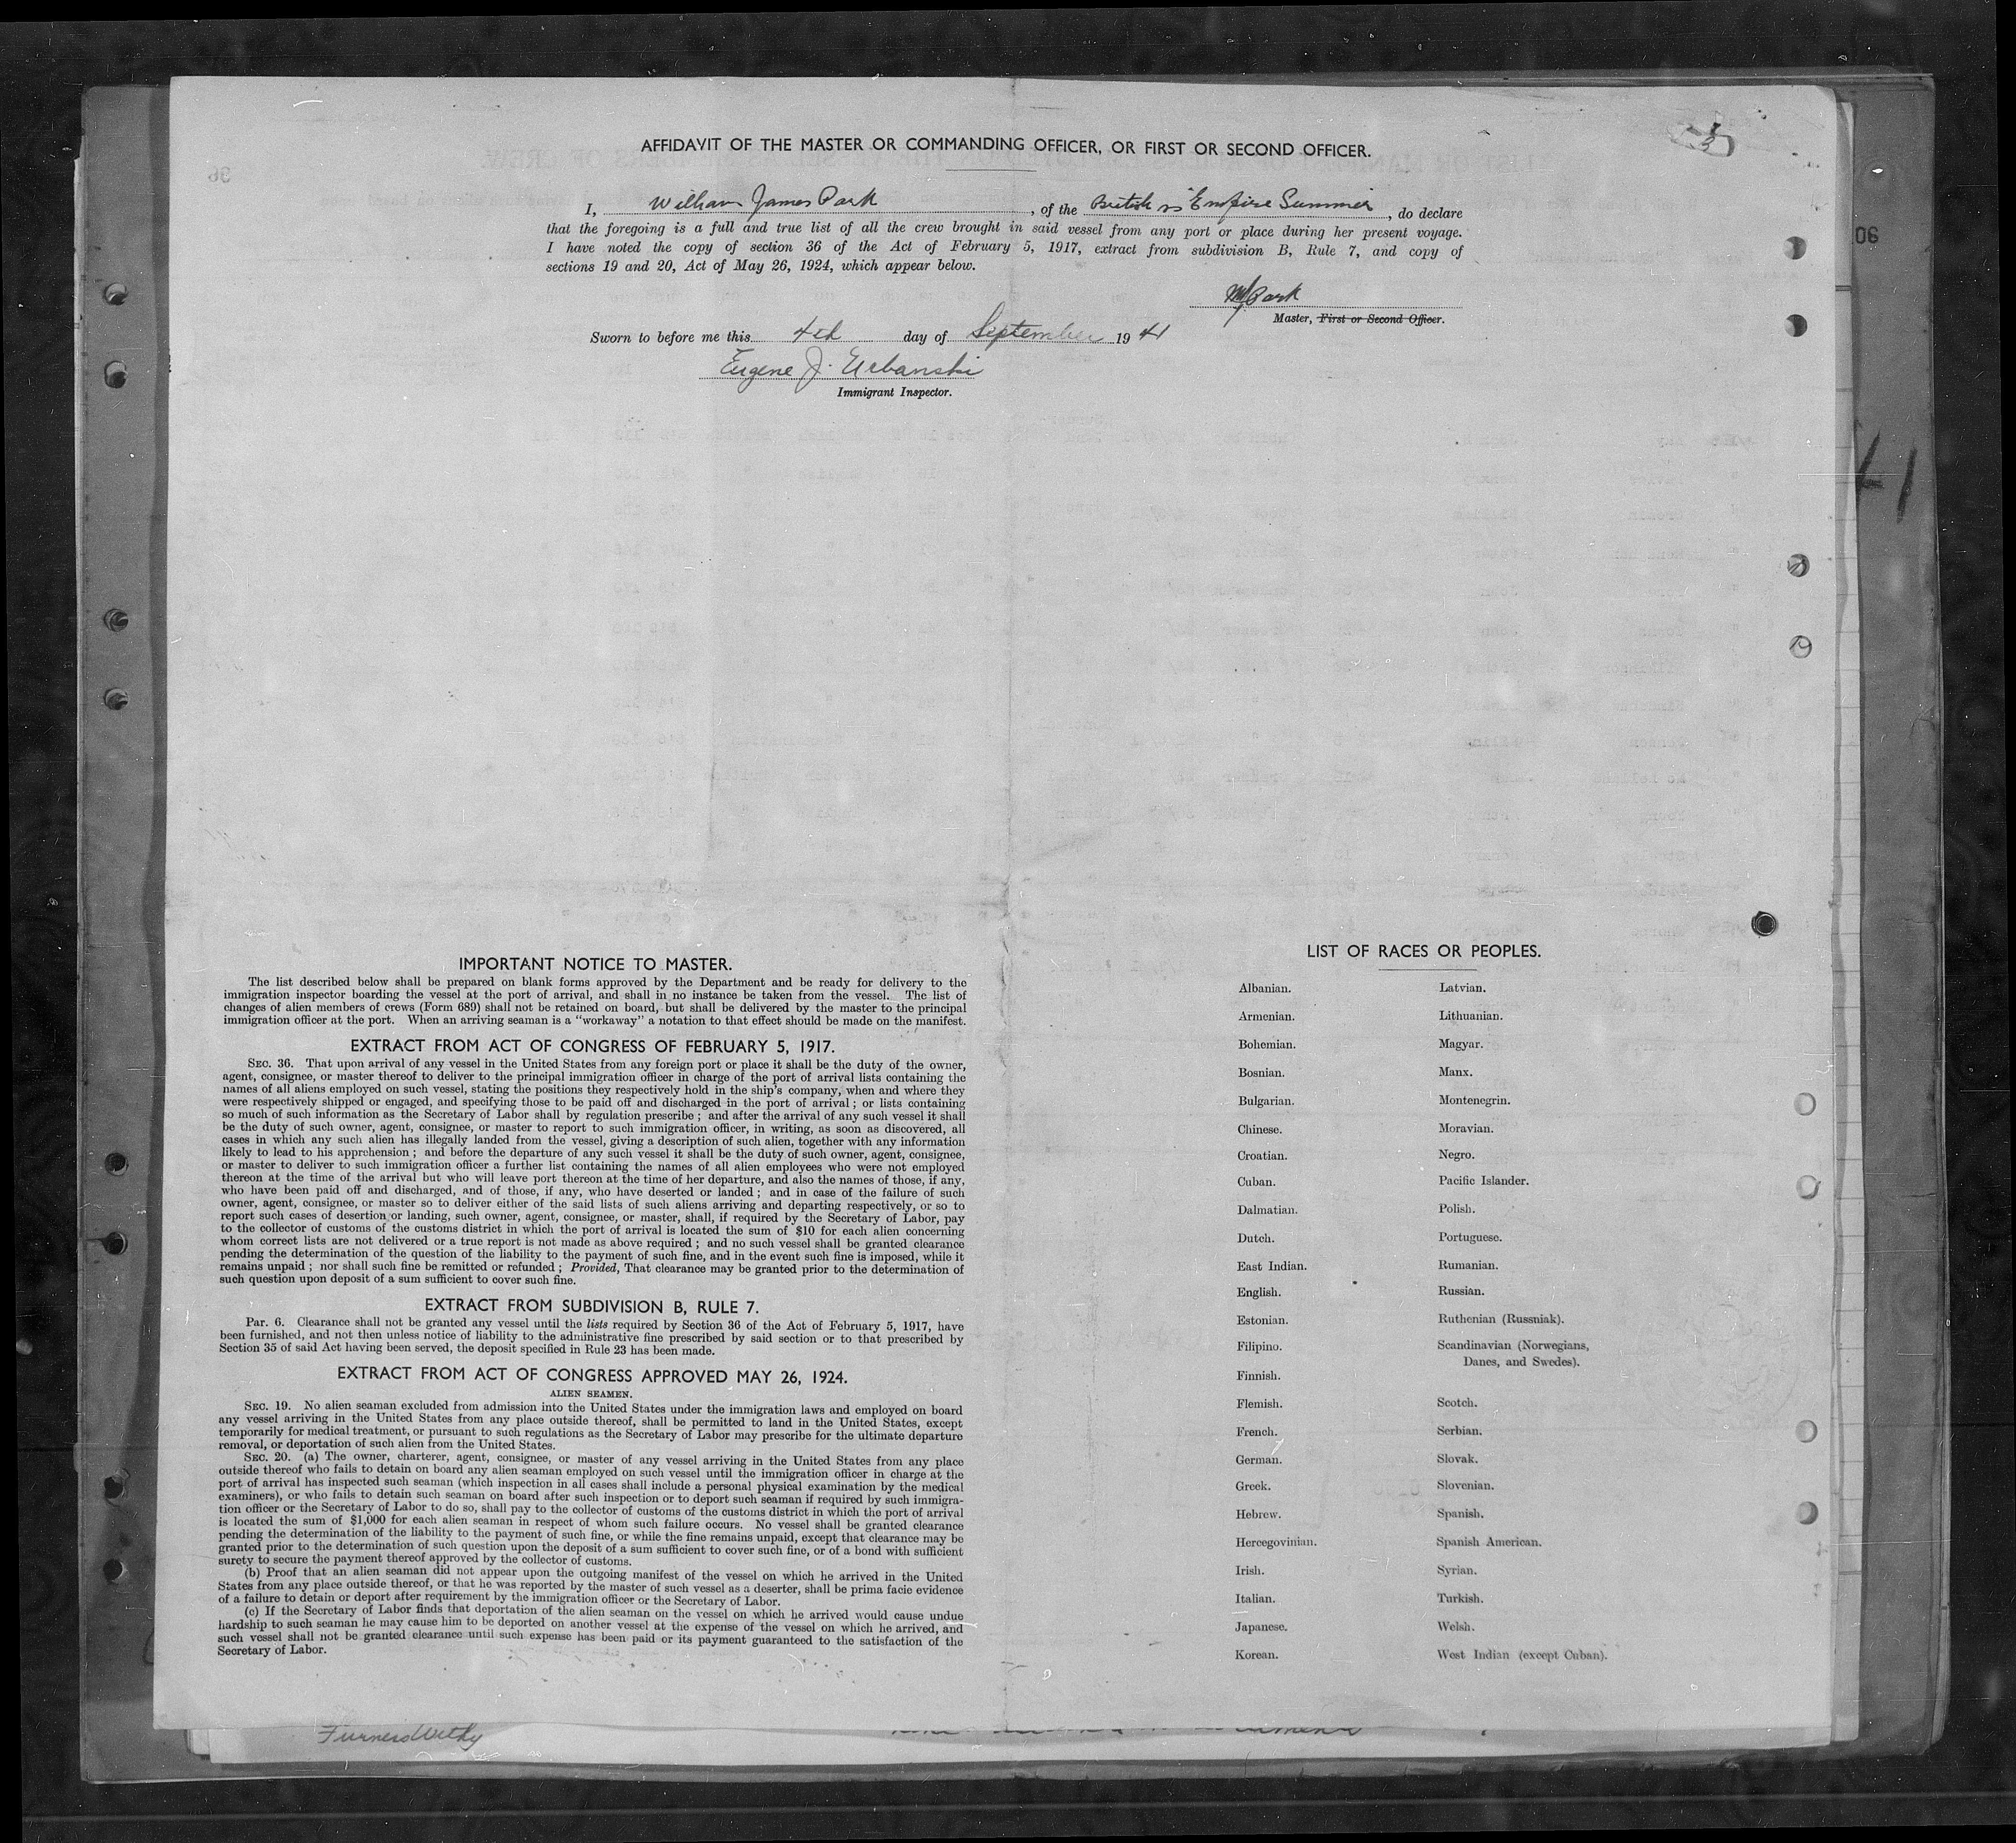 AFFIDAVIT OF THE MASTER OR COMMANDING OFFICER, OR FIRST OR SECOND OFFICER.
I, William James Park, of the British ss "Empire Summer", do declare
that the foregoing is a full and true list of all the crew brought in said vessel from any port or place during her present voyage.
I have noted the copy of section 36 of the Act of February 5, 1917, extract from subdivision B, Rule 7, and copy of
sections 19 and 20, Act of May 26, 1924, which appear below.
WJ Park
Master, First or Second Officer.
Sworn to before me this 4th day of September 1941
Eugene J. Urbanski
Immigrant Inspector.
06
41
IMPORTANT NOTICE TO MASTER.
The list described below shall be prepared on blank forms approved by the Department and be ready for delivery to the
immigration inspector boarding the vessel at the port of arrival, and shall in no instance be taken from the vessel. The list of
changes of alien members of crews (Form 689) shall not be retained on board, but shall be delivered by the master to the principal
immigration officer at the port. When an arriving seaman is a "workaway" a notation to that effect should be made on the manifest.
EXTRACT FROM ACT OF CONGRESS OF FEBRUARY 5, 1917.
SEC. 36. That upon arrival of any vessel in the United States from any foreign port or place it shall be the duty of the owner,
agent, consignee, or master thereof to deliver to the principal immigration officer in charge of the port of arrival lists containing the
names of all aliens employed on such vessel, stating the positions they respectively hold in the ship's company, when and where they
were respectively shipped or engaged, and specifying those to be paid off and discharged in the port of arrival ; or lists containing
so much of such information as the Secretary of Labor shall by regulation prescribe ; and after the arrival of any such vessel it shall
be the duty of such owner, agent, consignee, or master to report to such immigration officer, in writing, as soon as discovered, all
cases in which any such alien has illegally landed from the vessel, giving a description of such alien, together with any information
likely to lead to his apprehension ; and before the departure of any such vessel it shall be the duty of such owner, agent, consignee,
or master to deliver to such immigration officer a further list containing the names of all alien employees who were not employed
thereon at the time of the arrival but who will leave port thereon at the time of her departure, and also the names of those, if any,
who have been paid off and discharged, and of those, if any, who have deserted or landed ; and in case of the failure of such
owner, agent, consignee, or master so to deliver either of the said lists of such aliens arriving and departing respectively, or so to
report such cases of desertion or landing, such owner, agent, consignee, or master, shall, if required by the Secretary of Labor, pay
to the collector of customs of the customs district in which the port of arrival is located the sum of $10 for each alien concerning
whom correct lists are not delivered or a true report is not made as above required ; and no such vessel shall be granted clearance
pending the determination of the question of the liability to the payment of such fine, and in the event such fine is imposed, while it
remains unpaid ; nor shall such fine be remitted or refunded ; Provided, That clearance may be granted prior to the determination of
such question upon deposit of a sum sufficient to cover such fine.
EXTRACT FROM SUBDIVISION B, RULE 7.
Par. 6. Clearance shall not be granted any vessel until the lists required by Section 36 of the Act of February 5, 1917, have
been furnished, and not then unless notice of liability to the administrative fine prescribed by said section or to that prescribed by
Section 35 of said Act having been served, the deposit specified in Rule 23 has been made.
EXTRACT FROM ACT OF CONGRESS APPROVED MAY 26, 1924.
ALIEN SEAMEN.
SEC. 19. No alien seaman excluded from admission into the United States under the immigration laws and employed on board
any vessel arriving in the United States from any place outside thereof, shall be permitted to land in the United States, except
temporarily for medical treatment, or pursuant to such regulations as the Secretary of Labor may prescribe for the ultimate departure
removal, or deportation of such alien from the United States.
SEC. 20. (a) The owner, charterer, agent, consignee, or master of any vessel arriving in the United States from any place
outside thereof who fails to detain on board any alien seaman employed on such vessel until the immigration officer in charge at the
port of arrival has inspected such seaman (which inspection in all cases shall include a personal physical examination by the medical
examiners), or who fails to detain such seaman on board after such inspection or to deport such seaman if required by such immigra-
tion officer or the Secretary of Labor to do so, shall pay to the collector of customs of the customs district in which the port of arrival
is located the sum of $1,000 for each alien seaman in respect of whom such failure occurs. No vessel shall be granted clearance
pending the determination of the liability to the payment of such fine, or while the fine remains unpaid, except that clearance may be
granted prior to the determination of such question upon the deposit of a sum sufficient to cover such fine, or of a bond with sufficient
surety to secure the payment thereof approved by the collector of customs.
(b) Proof that an alien seaman did not appear upon the outgoing manifest of the vessel on which he arrived in the United
States from any place outside thereof, or that he was reported by the master of such vessel as a deserter, shall be prima facie evidence
of a failure to detain or deport after requirement by the immigration officer or the Secretary of Labor.
(c) If the Secretary of Labor finds that deportation of the alien seaman on the vessel on which he arrived would cause undue
hardship to such seaman he may cause him to be deported on another vessel at the expense of the vessel on which he arrived, and
such vessel shall not be granted clearance until such expense has been paid or its payment guaranteed to the satisfaction of the
Secretary of Labor.
LIST OF RACES OR PEOPLES.
Albanian.
Armenian.
Bohemian.
Bosnian.
Bulgarian.
Chinese.
Croatian.
Cuban.
Dalmatian.
Dutch.
East Indian.
English.
Estonian.
Filipino.
Finnish.
Flemish.
French.
German.
Greek.
Hebrew.
Hercegovinian.
Irish.
Italian.
Japanese.
Korean.
Latvian.
Lithuanian.
Magyar.
Manx.
Montenegrin.
Moravian.
Negro.
Pacific Islander.
Polish.
Portuguese.
Rumanian.
Russian.
Ruthenian (Russniak).
Scandinavian (Norwegians,
Danes, and Swedes).
Scotch.
Serbian.
Slovak.
Slovenian.
Spanish.
Spanish American.
Syrian.
Turkish.
Welsh.
West Indian (except Cuban).
Furness Withy